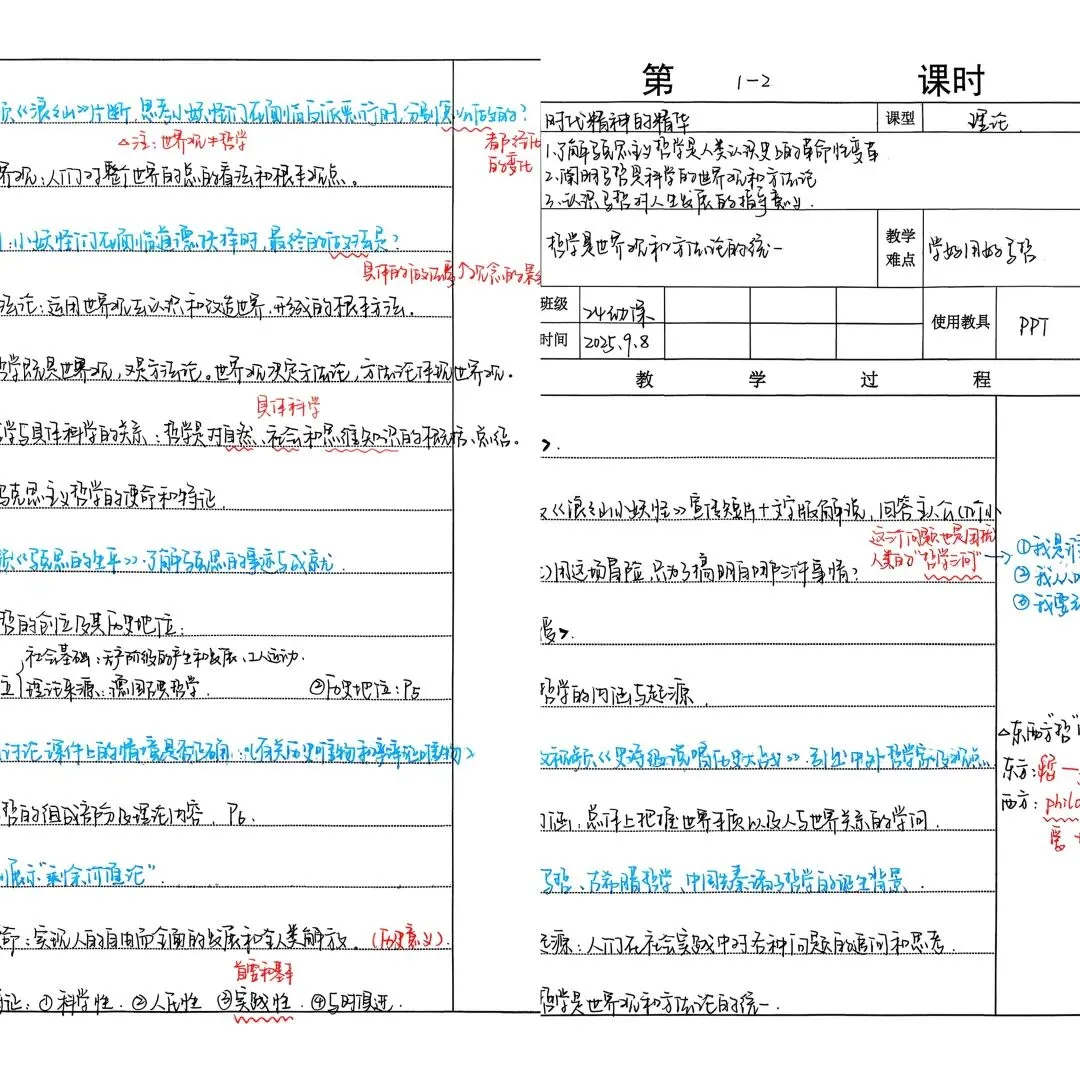 第 1-2 课时
时代精神的精华 课型 理论
1.了解马克思主义哲学是人类认识史上的革命性变革
2.阐明马哲是科学的世界观和方法论
3.认识马哲对人生发展的指导意义.
哲学是世界观和方法论的统一 教学难点 学好用好马哲
班级 24幼保 使用教具 PPT
时间 2025.9.8
教 学 过 程
>.
《浪浪山小妖怪》宣传短片+文字版解说,回答主人公(几个小
)用这场冒险,只为了搞明白哪三件事情?
这三个问题也是困扰
人类的"哲学三问"
①我是
②我从
③我要
>.
哲学的内涵与起源
△东西"哲"
视频《史诗级说唱历史大战》.引出中外哲学家及观点.
东方:哲一
西方:philo
爱+
涵:总体上把握世界本质以及人与世界关系的学问.
古希腊哲学、中国先秦诸子哲学的诞生背景.
源:人们在社会实践中对各种问题的追问和思考.
哲学是世界观和方法论的统一.
《浪浪山》片断,思考小妖怪们在面临反派恶行时,分别是如何做的?
△注:世界观≠哲学
的变化
界观:人们对整个世界的总的看法和根本观点。
:小妖怪们在面临道德抉择时,最终的做法是?
具体的做法受↑观念的影
法论:运用世界观去认识和改造世界,形成的根本方法.
哲学既是世界观,又是方法论。世界观决定方法论,方法论体现世界观.
具体科学
学与具体科学的关系:哲学是对自然、社会和思维知识的概括、总结。
马克思主义哲学的使命和特征
《马克思的生平》.了解马克思的事迹与成就.
哲的创立及其历史地位:
社会基础:无产阶级的产生和发展、工人运动.
立 理论来源:德国古典哲学. ②历史地位:P5
讨论.课件上的情境是否正确:《有关历史唯物和辩证唯物》
哲的组成部分及理论内容. P6.
展示"剩余价值论".
命:实现人的自由而全面的发展和全人类解放.(历史意义).
首要和基本
征:①科学性.②人民性 ③实践性 ④与时俱进.